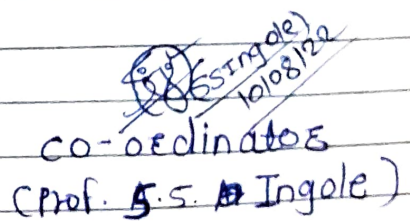 (SSIngole)
10/08/22
co-ordinator
(Prof. S.S. Ingole)